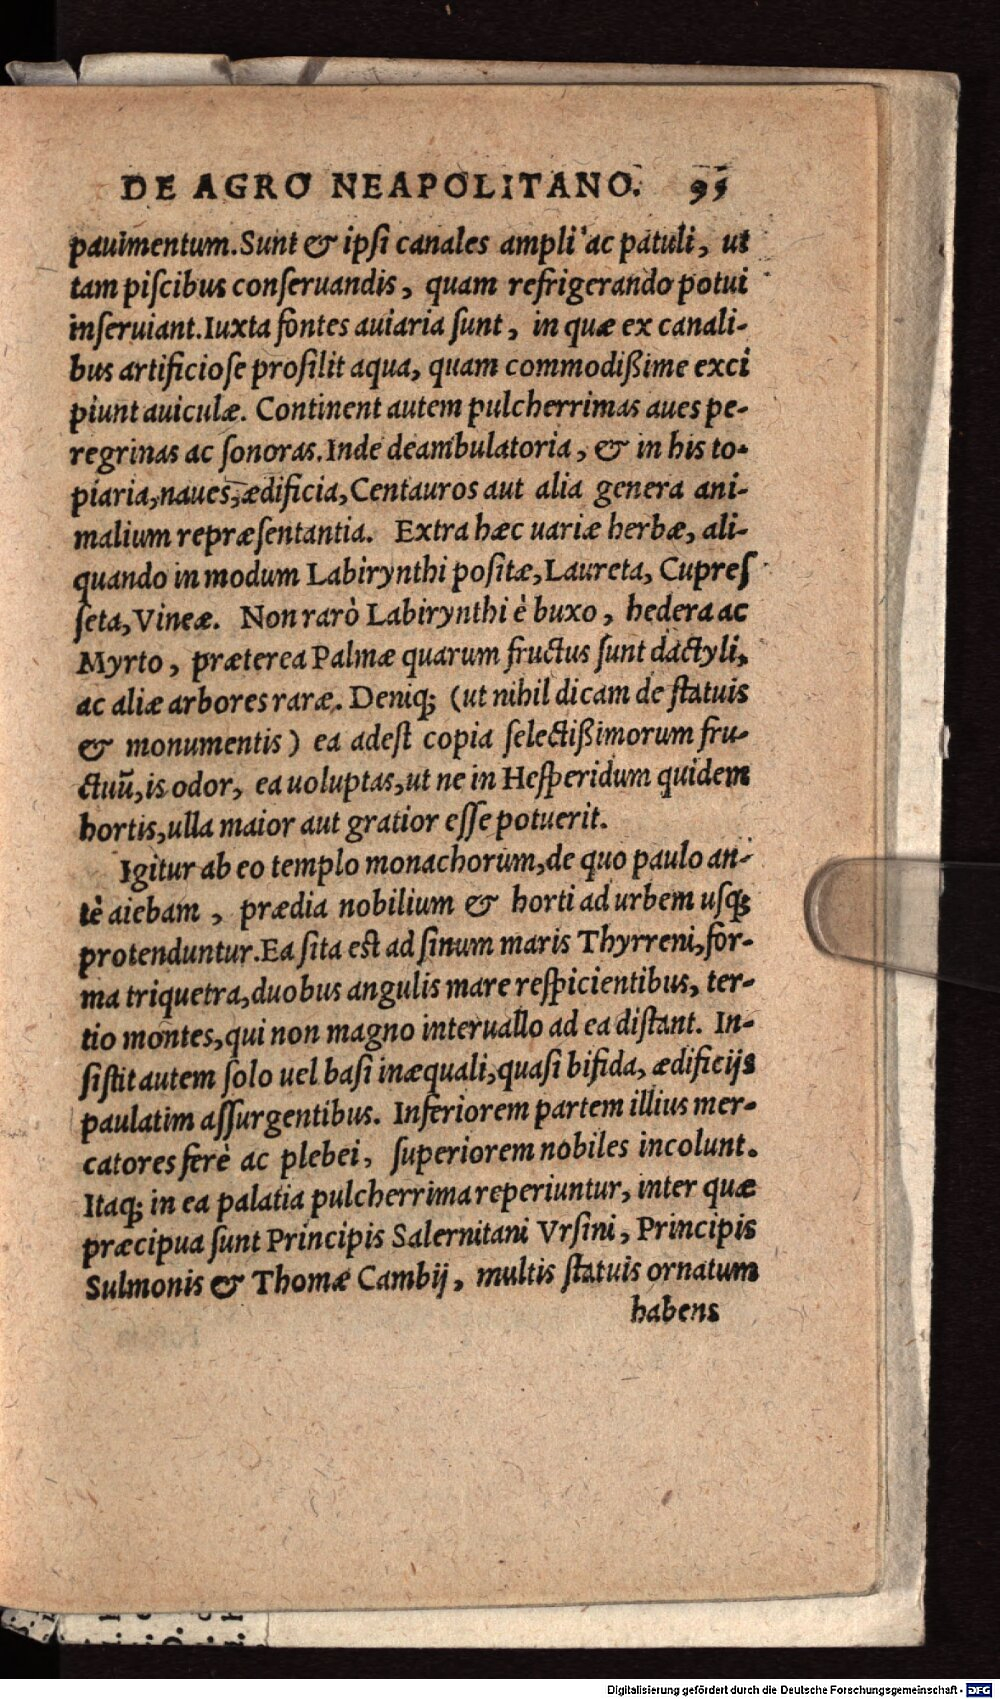 DE AGRO NEAPOLITANO. 95
pauimentum. Sunt & ipsi canales ampli ac patuli, ut
tam piscibus conseruandis, quam refrigerando potui
inseruiant. Iuxta fontes auiaria sunt, in quæ ex canali-
bus artificiose prosilit aqua, quam commodißime exci
piunt auiculæ. Continent autem pulcherrimas aues pe-
regrinas ac sonoras. Inde deambulatoria, & in his to-
piaria, naues, ædificia, Centauros aut alia genera ani-
malium repræsentantia. Extra hæc uariæ herbæ, ali-
quando in modum Labirynthi positæ, Laureta, Cupres
seta, Vineæ. Non rarò Labirynthi è buxo, hedera ac
Myrto, præterea Palmæ quarum fructus sunt dactyli,
ac aliæ arbores raræ. Deniq; (ut nihil dicam de statuis
& monumentis) ea adest copia selectißimorum fru-
ctuū, is odor, ea uoluptas, ut ne in Hesperidum quidem
hortis, ulla maior aut gratior esse potuerit.
Igitur ab eo templo monachorum, de quo paulo an-
tè aiebam, prædia nobilium & horti ad urbem usq;
protenduntur. Ea sita est ad sinum maris Thyrreni, for-
ma triquetra, duobus angulis mare respicientibus, ter-
tio montes, qui non magno interuallo ad ea distant. In-
sistit autem solo uel basi inæquali, quasi bifida, ædificijs
paulatim assurgentibus. Inferiorem partem illius mer-
catores ferè ac plebei, superiorem nobiles incolunt.
Itaq; in ea palatia pulcherrima reperiuntur, inter quæ
præcipua sunt Principis Salernitani Vrsini, Principis
Sulmonis & Thomæ Cambij, multis statuis ornatum
habens
Digitalisierung gefördert durch die Deutsche Forschungsgemeinschaft - DFG